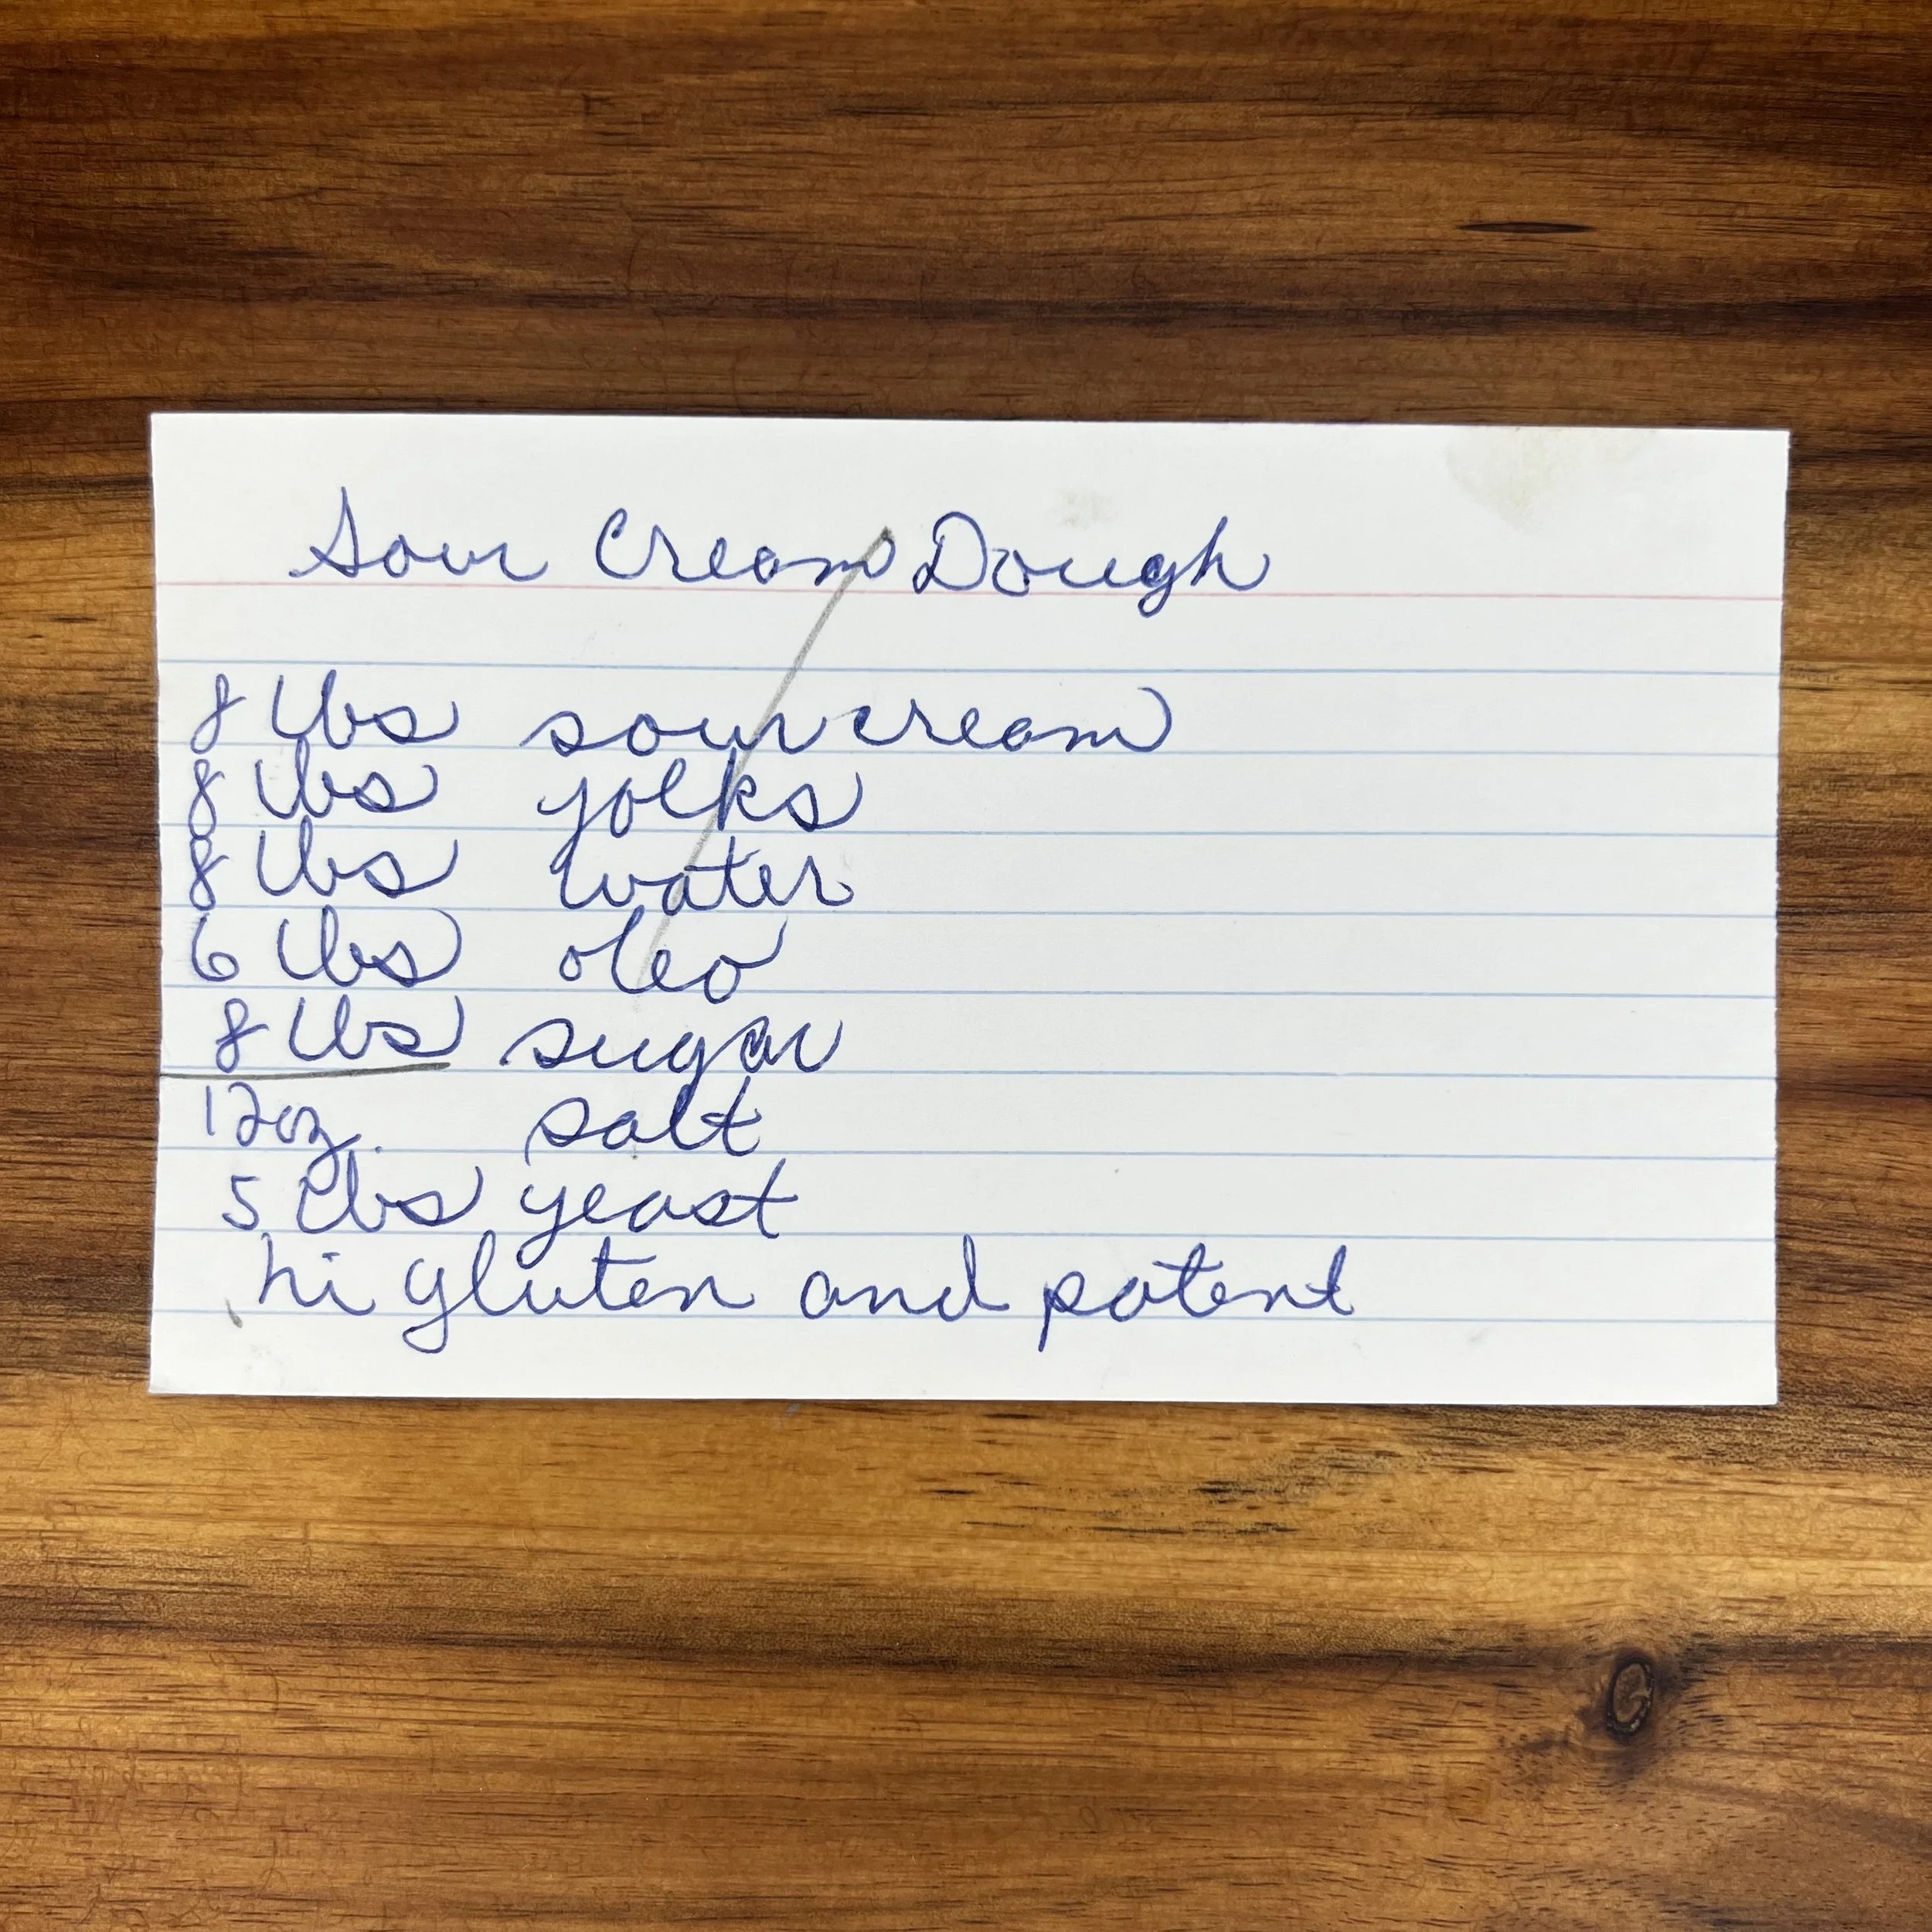 Sour Cream Dough
8 lbs sour cream
8 lbs yolks
8 lbs water
6 lbs oleo
8 lbs sugar
12oz. salt
5 lbs yeast
hi gluten and patent